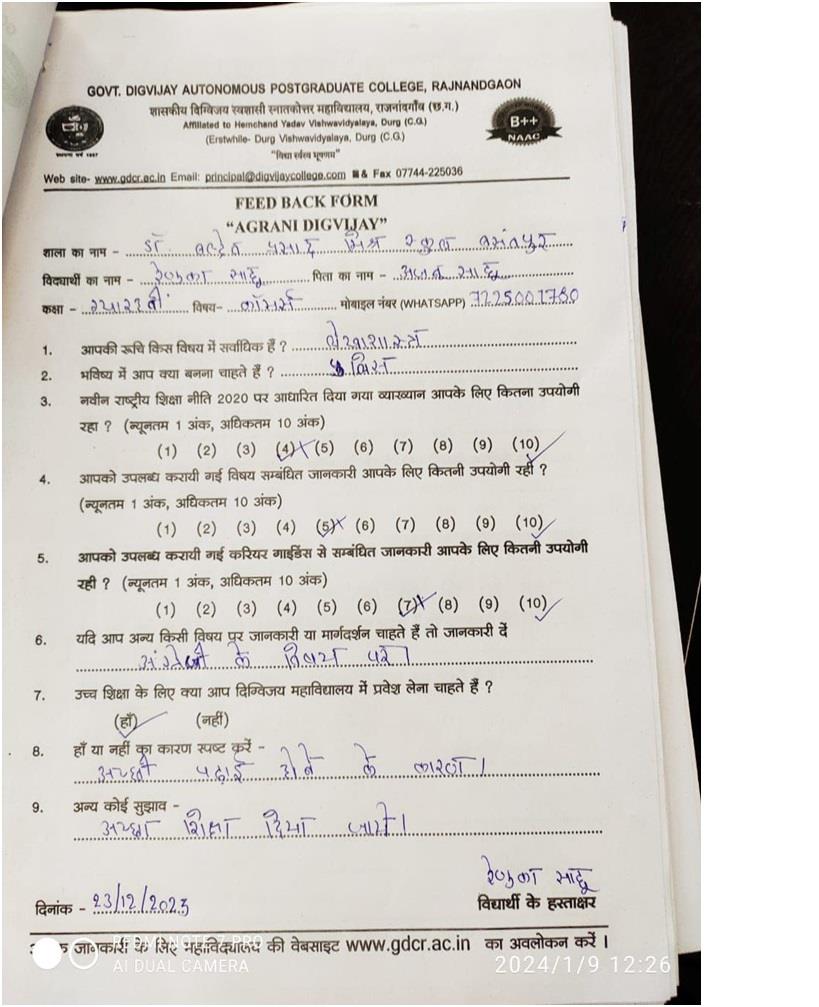 GOVT. DIGVIJAY AUTONOMOUS POSTGRADUATE COLLEGE, RAJNANDGAON
शासकीय दिग्विजय स्वशासी स्नातकोत्तर महाविद्यालय, राजनांदगाँव (छ.ग.)
Affiliated to Hemchand Yadav Vishwavidyalaya, Durg (C.G.)
(Erstwhile- Durg Vishwavidyalaya, Durg (C.G.)
B++
NAAC
Web site- www.gdcr.ac.in Email: principal@digvijaycollege.com & Fax 07744-225036
FEED BACK FORM
“AGRANI DIGVIJAY”
शाला का नाम - डॉ. बल्देव प्रसाद मिश्र स्कुल बसंतपुर
विद्यार्थी का नाम - रेणुका साहू पिता का नाम - साहू
कक्षा - ग्यारहवीं विषय- कॉमर्स मोबाइल नंबर (WHATSAPP) 7225001780
1. आपकी रूचि किस विषय में सर्वाधिक हैं ? लेखाशास्त्र
2. भविष्य में आप क्या बनना चाहते हैं ?
3. नवीन राष्ट्रीय शिक्षा नीति 2020 पर आधारित दिया गया व्याख्यान आपके लिए कितना उपयोगी
रहा ? (न्यूनतम 1 अंक, अधिकतम 10 अंक)
(1) (2) (3) (4) (5) (6) (7) (8) (9) (10)
4. आपको उपलब्ध करायी गई विषय सम्बंधित जानकारी आपके लिए कितनी उपयोगी रही ?
(न्यूनतम 1 अंक, अधिकतम 10 अंक)
(1) (2) (3) (4) (5) (6) (7) (8) (9) (10)
5. आपको उपलब्ध करायी गई करियर गाईडेंस से सम्बंधित जानकारी आपके लिए कितनी उपयोगी
रही ? (न्यूनतम 1 अंक, अधिकतम 10 अंक)
(1) (2) (3) (4) (5) (6) (7) (8) (9) (10)
6. यदि आप अन्य किसी विषय पर जानकारी या मार्गदर्शन चाहते हैं तो जानकारी दें
के विषय पर।
7. उच्च शिक्षा के लिए क्या आप दिग्विजय महाविद्यालय में प्रवेश लेना चाहते हैं ?
(हाँ) (नहीं)
8. हाँ या नहीं का कारण स्पष्ट करें -
अच्छी पढ़ाई होने के कारण।
9. अन्य कोई सुझाव -
अच्छा शिक्षा दिया जाये।
रेणुका साहू
दिनांक - 23/12/2023 विद्यार्थी के हस्ताक्षर
जानकारी के लिए महाविद्यालय की वेबसाइट www.gdcr.ac.in का अवलोकन करें ।
REDMI NOTE 7 PRO
AI DUAL CAMERA 2024/1/9 12:26